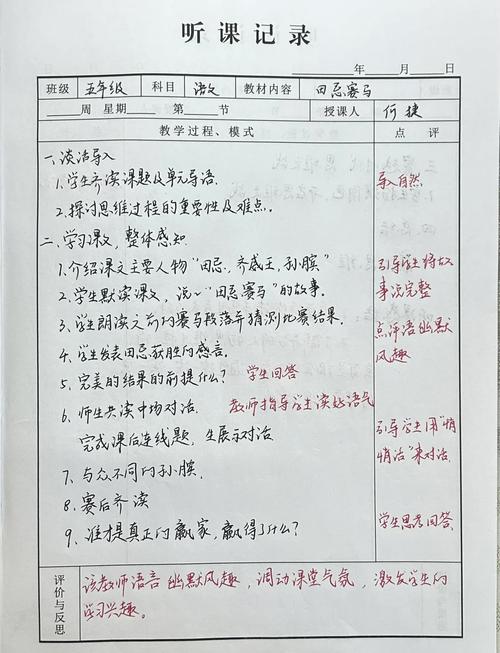 听课记录
年 月 日
班级 五年级 科目 语文 教材内容 田忌赛马
周 星期 第 节 授课人 何捷
教学过程、模式 点 评
一、谈话导入
1.学生齐读课题及单元导语. 导入自然
2.探讨思维过程的重要性及难点。
二、学习课文,整体感知
1.介绍课文主要人物“田忌、齐威王,孙膑”
2.学生默读课文,说一说“田忌赛马”的故事.
引导学生将故
事说完整
3.学生朗读之前的赛马段落并猜测比赛结果.
点评语幽默
风趣
4.学生发表田忌获胜的感言.
5.完美的结果的前提什么? 学生回答
6.师生共读中场对话. 教师指导学生读好语气
完成课后连线题,生展示对话
引导学生用“悄
悄话”来对话.
7、与众不同的孙膑.
8.赛后齐读
9、谁才是真正的赢家,赢得了什么?
学生思考回答.
评价与反思
该教师语言幽默风趣,调动课堂气氛,激发学生的
学习兴趣。